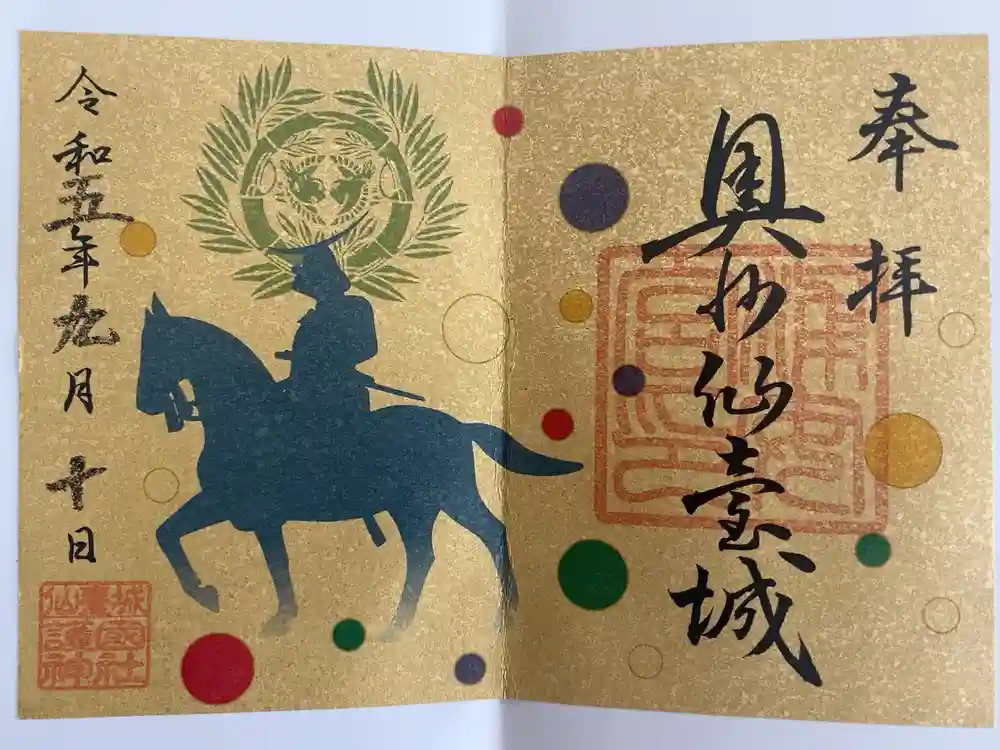 奉拝
奥州仙臺城
令和五年九月十日
仙臺城
護國神社